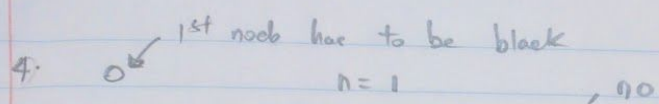 1st noeb hae to be black
4. n = 1 , no